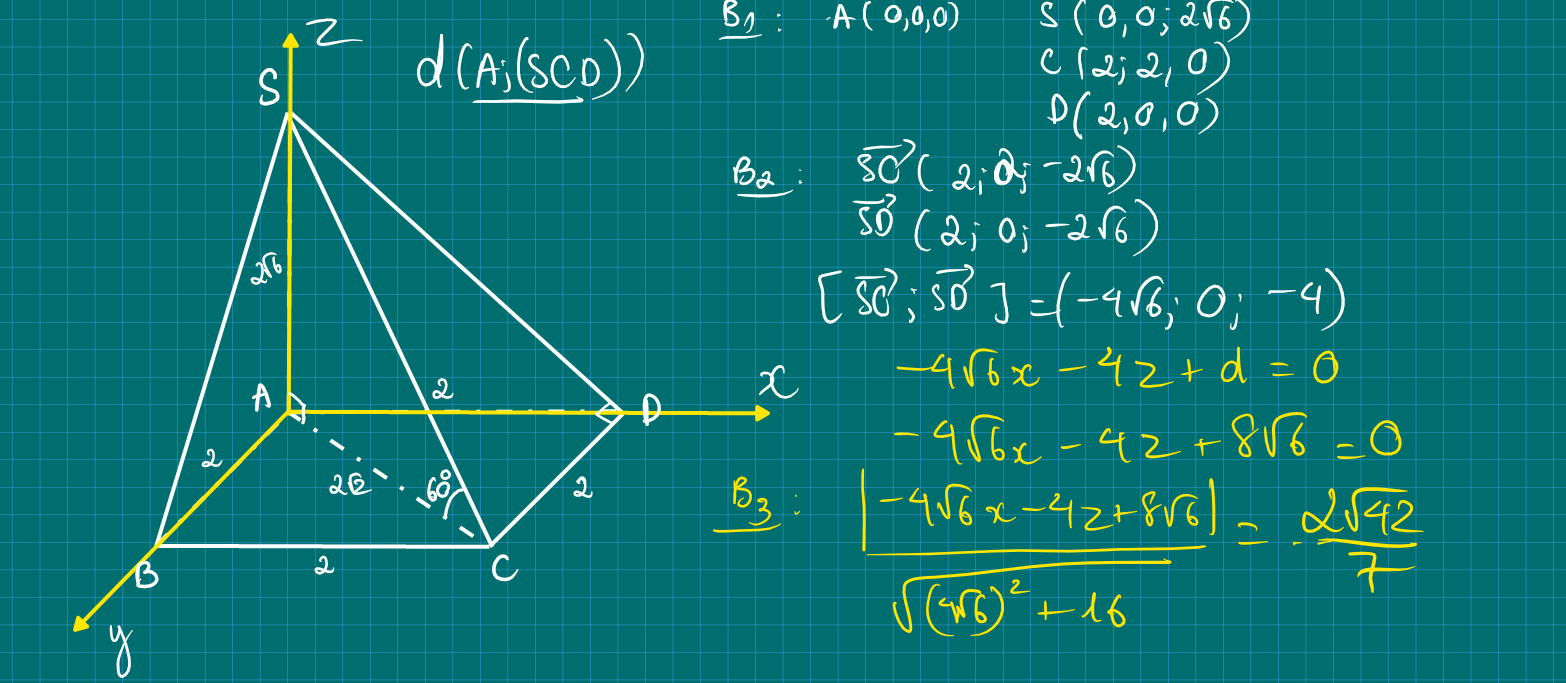 z
S
d(A;(SCD))
2√6
A
2
D
x
2
2√2
60°
2
B
2
C
y
B1 : A(0,0,0) S(0,0; 2√6)
C(2; 2, 0)
D(2,0,0)
B2 : SC→(2; 0; -2√6)
SD→(2; 0; -2√6)
[SC→; SD→] = (-4√6; 0; -4)
-4√6x - 4z + d = 0
-4√6x - 4z + 8√6 = 0
B3 : |-4√6x - 4z + 8√6| / √((4√6)² + 16) = 2√42 / 7